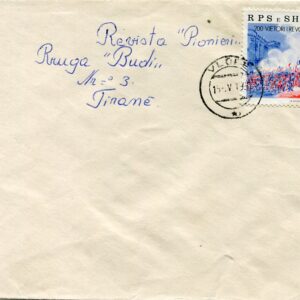 Revista "Pionieri"
Rruga "Budi"
Nr 3.
Tiranë
RPS e SH
200-VJETORI I REVO
VLORË
15.V.19